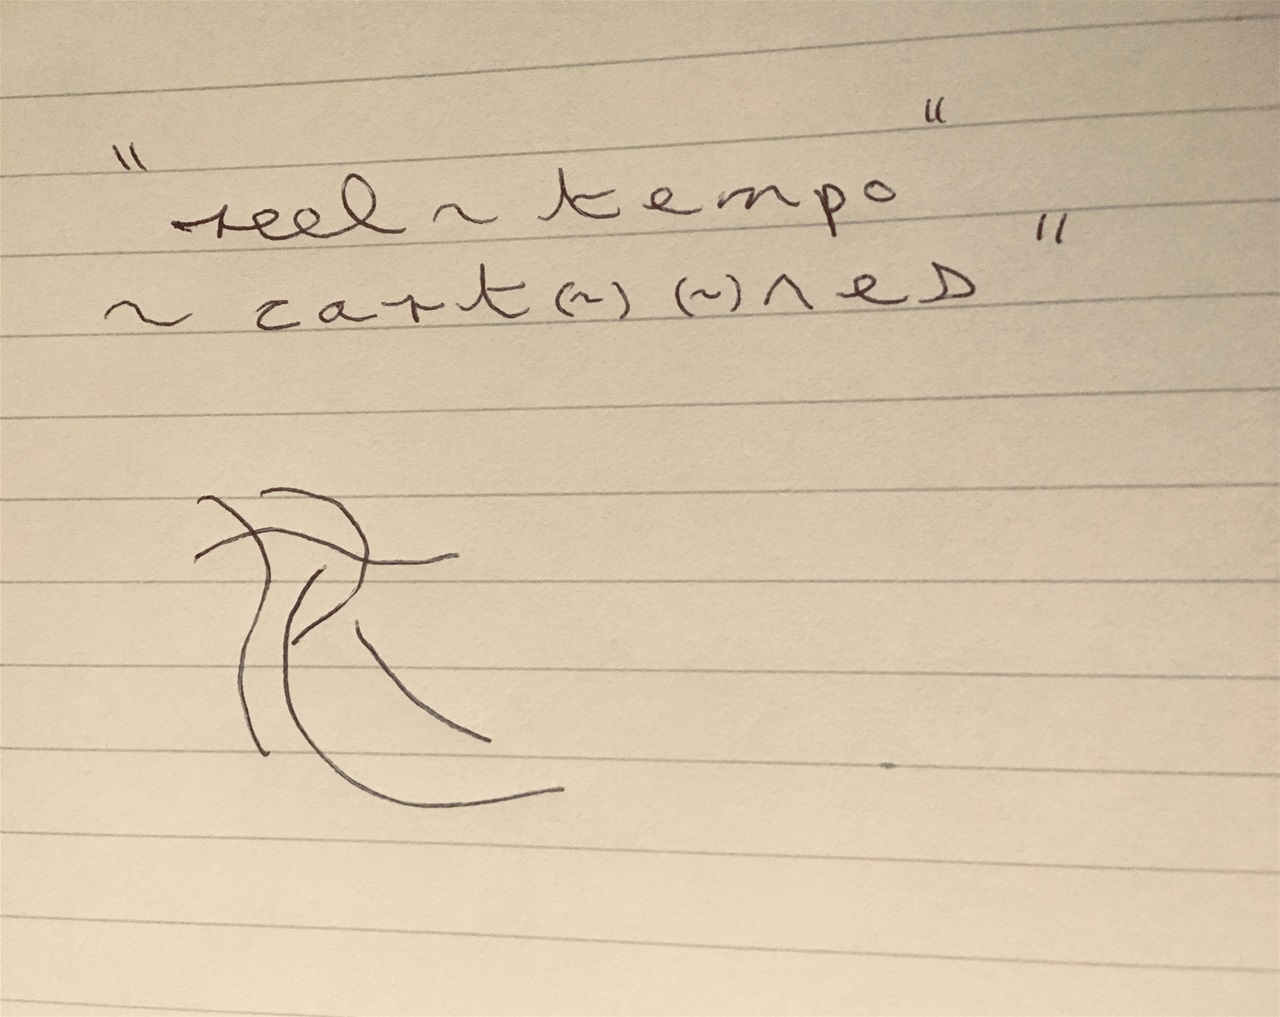 " reel ~ tempo "
~ cart(~) (~)nes "